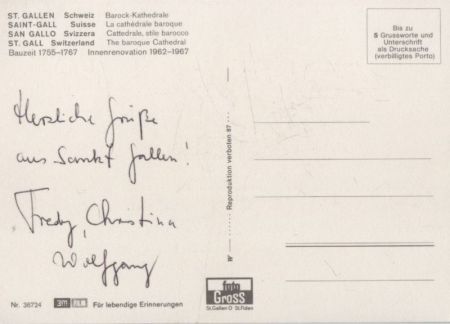 ST. GALLEN Schweiz Barock-Kathedrale
SAINT-GALL Suisse La cathédrale baroque
SAN GALLO Svizzera Cattedrale, stile barocco
ST. GALL Switzerland The baroque Cathedral
Bauzeit 1755-1767 Innenrenovation 1962-1967
Bis zu
5 Grussworte und
Unterschrift
als Drucksache
(verbilligtes Porto)
Herzliche Grüße
aus Sankt Gallen!
Fredy, Christina
Wolfgang
Reproduktion verboten 87
foto
Gross
St.Gallen O St.Fiden
Nr. 36724 3M FILM Für lebendige Erinnerungen